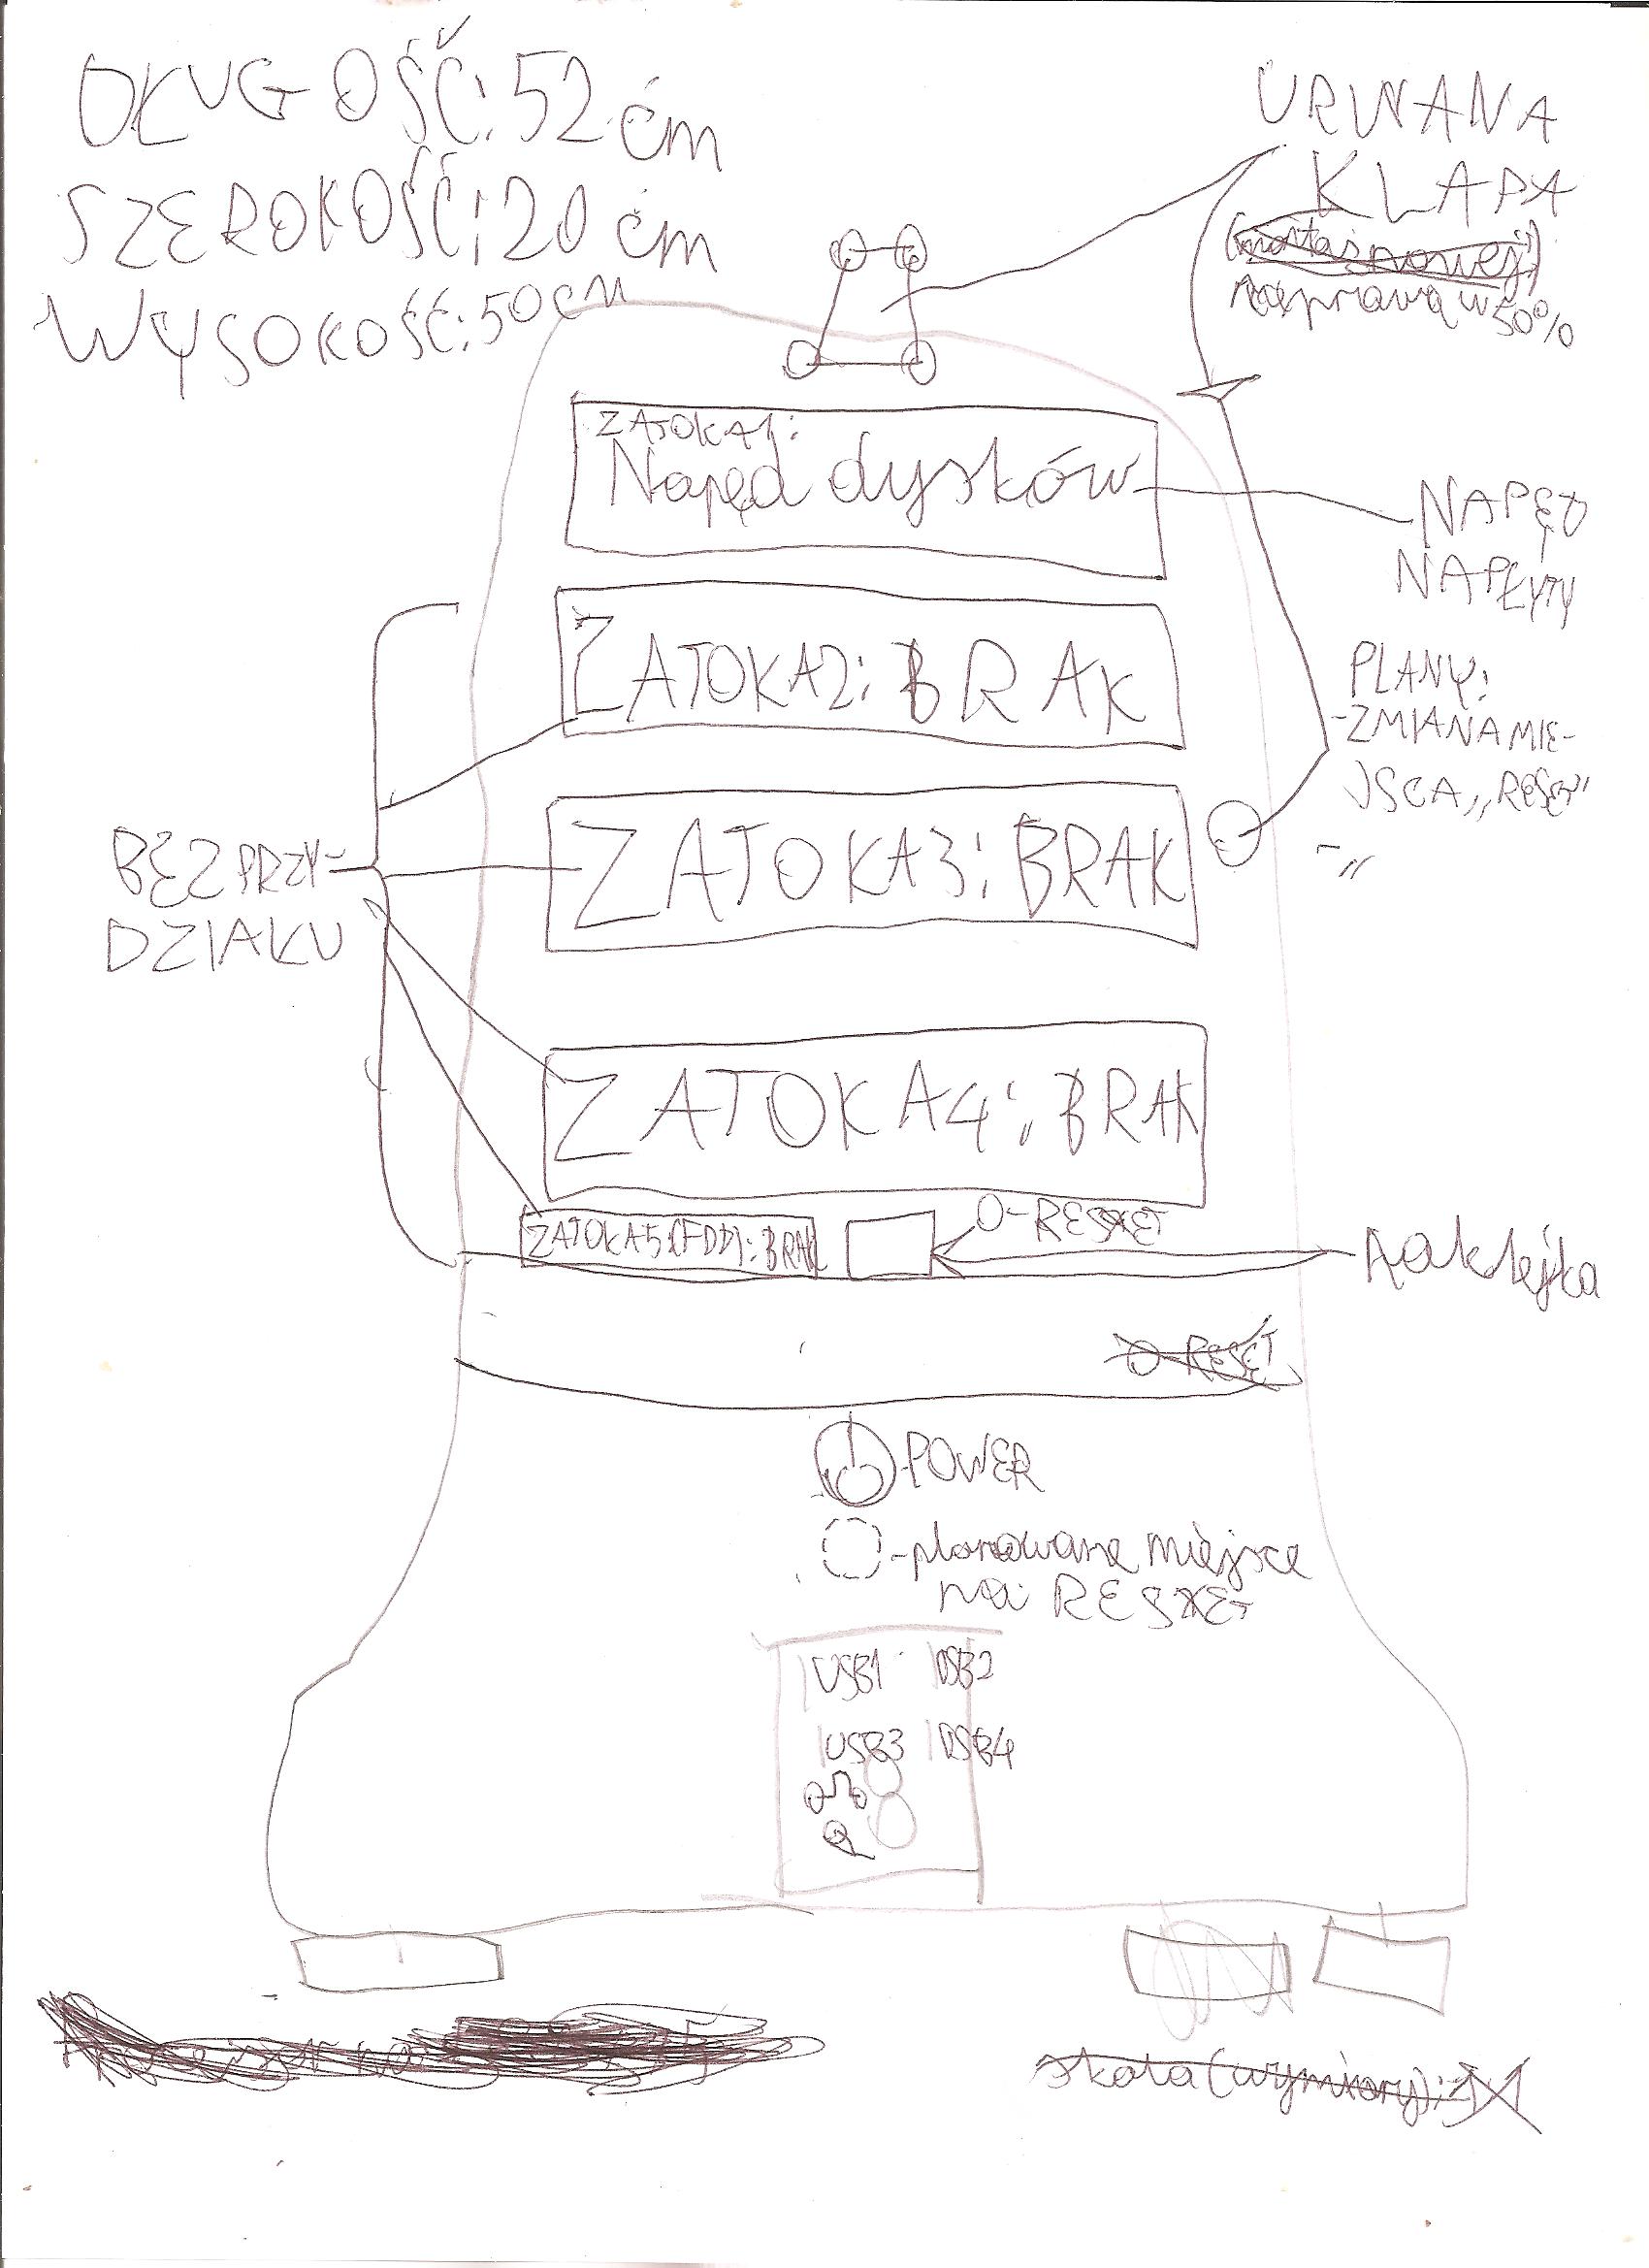 DŁUGOŚĆ: 52 cm
SZEROKOŚĆ: 20 cm
WYSOKOŚĆ: 50 cm
URWANA
KLAPA
nowej)
naprawa w 50%
ZATOKA1:
Napęd dysków
NAPĘD
NA PŁYTY
ZATOKA2: BRAK
PLANY:
-ZMIANA MIE-
JSCA „RESET”
- „
ZATOKA3: BRAK
BEZ PRZY-
DZIAŁU
ZATOKA4: BRAK
ZATOKA5(FDD): BRAK
O-RESET
naklejka
O-RESET
POWER
-planowane miejsce
na RESET
USB1 USB2
USB3 USB4
skala (wymiary): 1:1